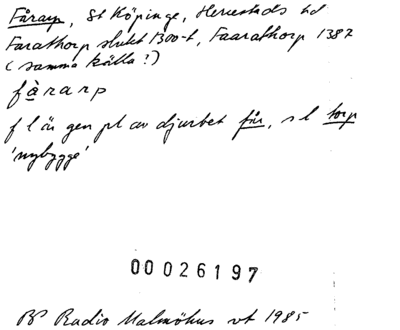 Fårarp, St Köpinge, Herrestads hd
Farathorp slutet 1300-t, Faarathorp 1387
(samma källa?)
fàrarp
f l är gen pl av djurbet får, s l torp
'nybygge'
00026197
BP Radio Malmöhus vt 1985